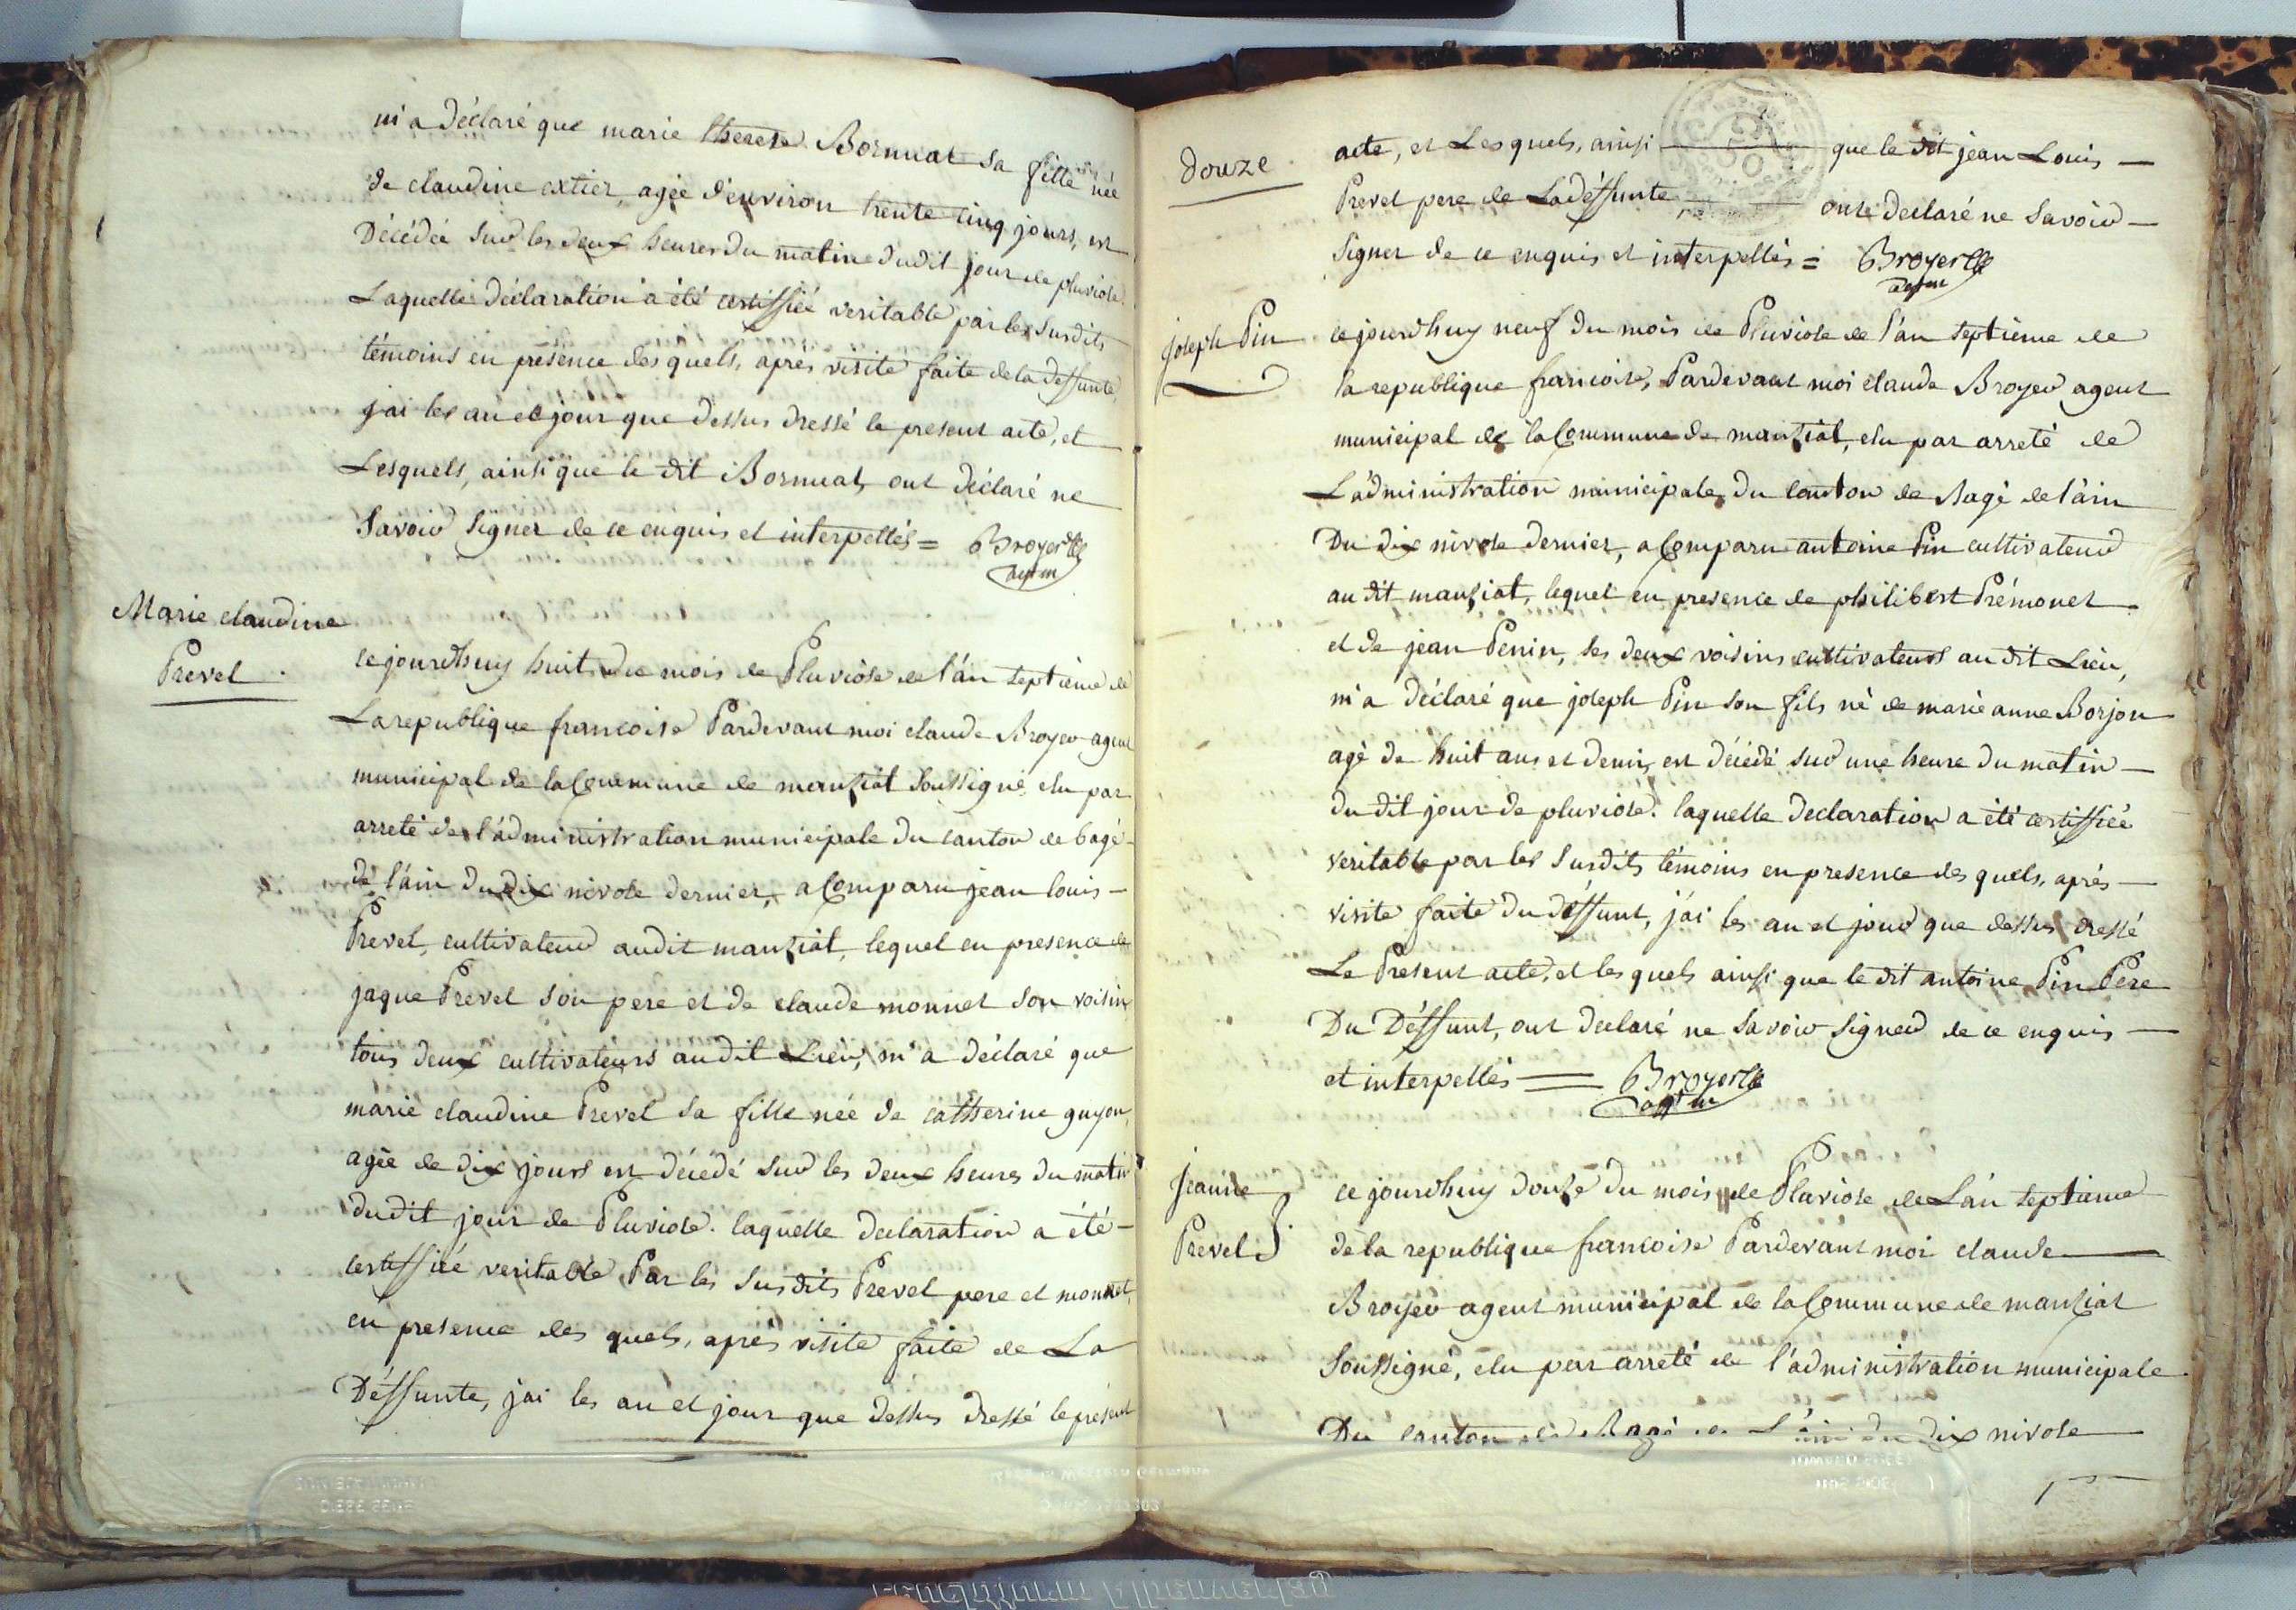 m'a déclaré que marie therese Bornuat sa fille née
de claudine extier, agée d'environ trente cinq jours, est
Décédée sur les deux heures du matin dudit jour de pluviose.
Laquelle déclaration a été certiffiée veritable par les susdits
témoins en presence des quels, aprés visite faite de la deffunte,
j'ai les an et jour que dessus dressé le present acte, et
Lesquels, ainsi que le dit Bornuat, ont déclaré ne
Savoir signer de ce enquis et interpellés = Broyer
agt m
Marie claudine
Prevel
cejourdhuy huit du mois de Pluviôse de l'an septième de
La republique francoise Pardevant moi claude Broyer agent
municipal de la Commune de manziat soussigné, elu par
arreté de l'administration municipale du canton de bagé
de l'ain du dix nivose dernier, a Comparu jean louis —
Prevel, cultivateur audit manziat, lequel en presence de
jaque Prevel son pere et de claude monnet son voisin,
tous deux cultivateurs audit Lieu, m'a déclaré que
marie claudine Prevel sa fille née de catherine guyon,
agée de dix jours est décédé sur les deux heures du matin
dudit jour de Pluviose. laquelle declaration a été —
certiffiée veritable Par les susdits Prevel pere et monnet,
en presence des quels, aprés visite faite de La
Déffunte, j'ai les an et jour que dessus dressé le présent
douze
acte, et Lesquels, ainsi — que le dit jean Louis —
Prevel pere de La déffunte — ont declaré ne Savoir —
Signer de ce enquis et interpellés = Broyer
agt m
joseph Pin
cejourdhuy neuf du mois de Pluviose de l'an septième de
la republique francoise, Pardevant moi claude Broyer agent
municipal de la Commune de manziat, elu par arreté de
L'administration municipale du canton de Bagé de l'ain
Du dix nivose dernier, a Comparu antoine Pin cultivateur
au dit manziat, lequel en presence de philibert Prémonet
et de jean Penin, ses deux voisins cultivateurs au dit Lieu,
m'a déclaré que joseph Pin son fils né de marie anne Borjon
agé de huit ans et demi, est décédé sur une heure du matin —
du dit jour de pluviose. laquelle declaration a été certiffiée
veritable par les susdits témoins en presence des quels, aprés —
visite faite du déffunt, j'ai les an et jour que dessus dressé
Le Present acte, et les quels ainsi que le dit antoine Pin Pere
Du Déffunt, ont declaré ne savoir signer de ce enquis —
et interpellés = Broyer
agt m
jeanne
Prevel
cejourdhuy douze du mois de Pluviose de L'an septième
de la republique francoise Pardevant moi claude —
Broyer agent municipal de la Commune de manziat
Soussigné, elu par arreté de l'administration municipale
Du canton de Bagé de L'ain du dix nivose